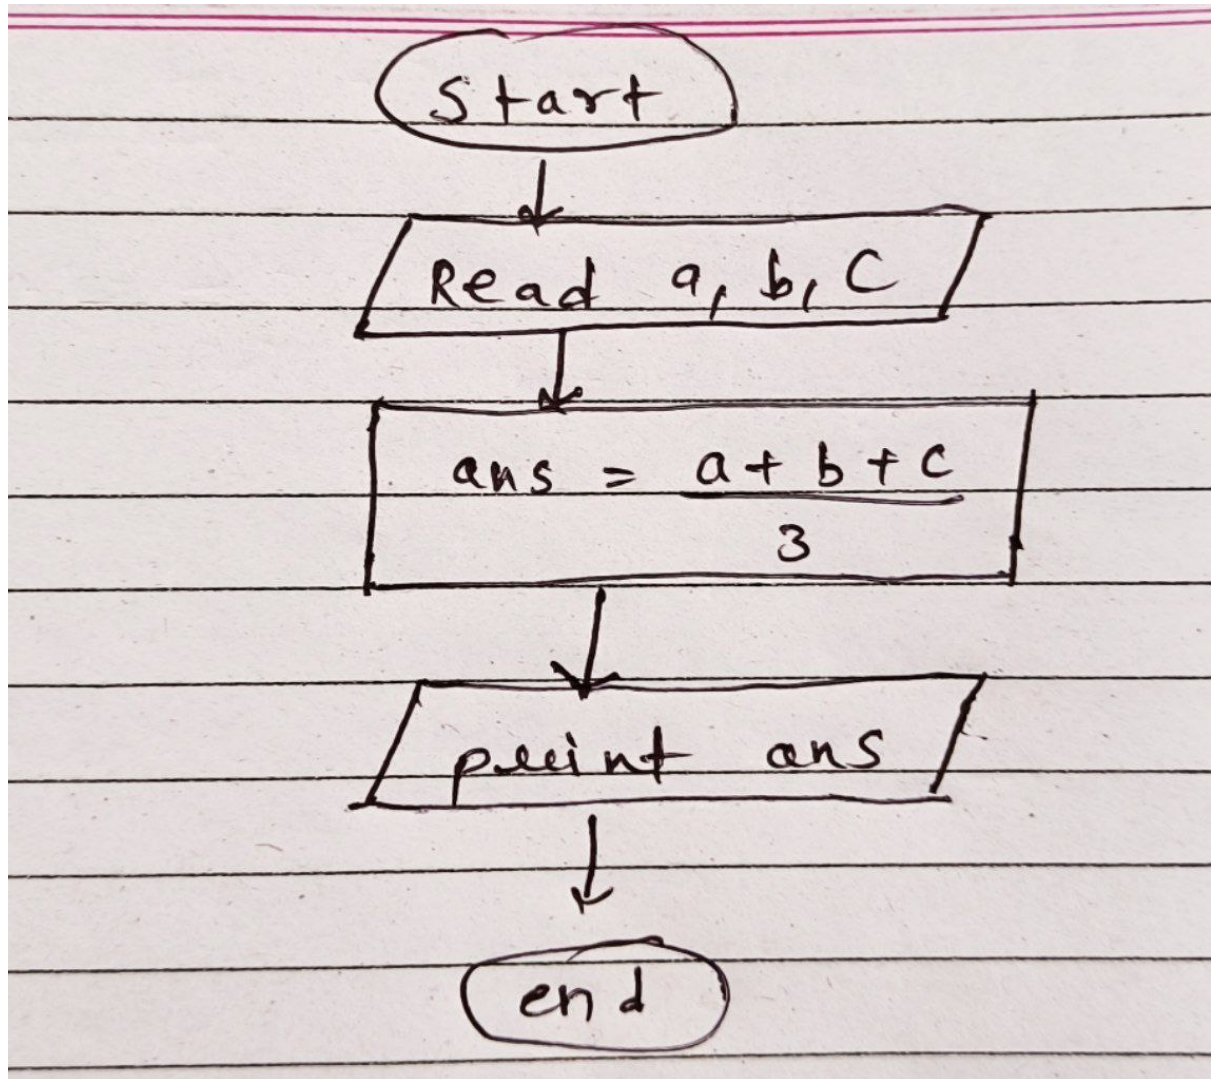 Start
Read a, b, c
ans = a + b + c
3
print ans
end